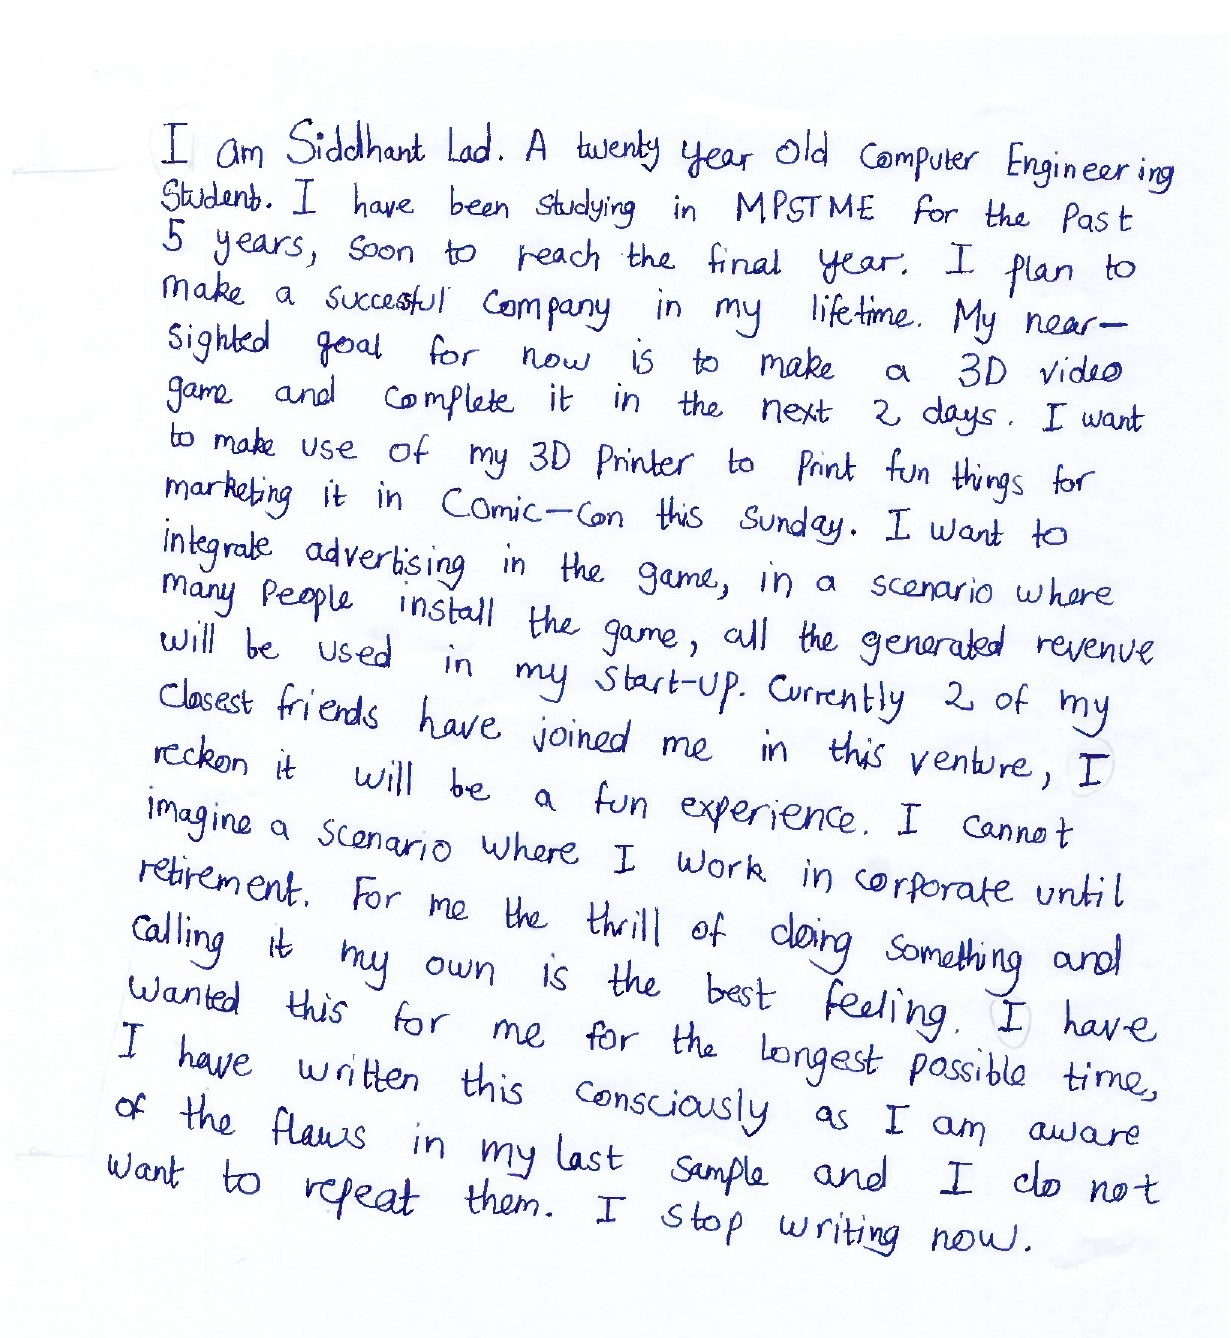 I am Siddhant Lad. A twenty year old Computer Engineering
Student. I have been studying in MPSTME for the Past
5 years, soon to reach the final year. I plan to
make a succesful company in my lifetime. My near-
sighted goal for now is to make a 3D video
game and complete it in the next 2 days. I want
to make use of my 3D Printer to print fun things for
marketing it in Comic-Con this Sunday. I want to
integrate advertising in the game, in a scenario where
many people install the game, all the generated revenue
will be used in my start-up. Currently 2 of my
closest friends have joined me in this venture, I
reckon it will be a fun experience. I cannot
imagine a scenario where I work in corporate until
retirement. For me the thrill of doing something and
calling it my own is the best feeling. I have
wanted this for me for the longest possible time,
I have written this consciously as I am aware
of the flaws in my last sample and I do not
want to repeat them. I stop writing now.